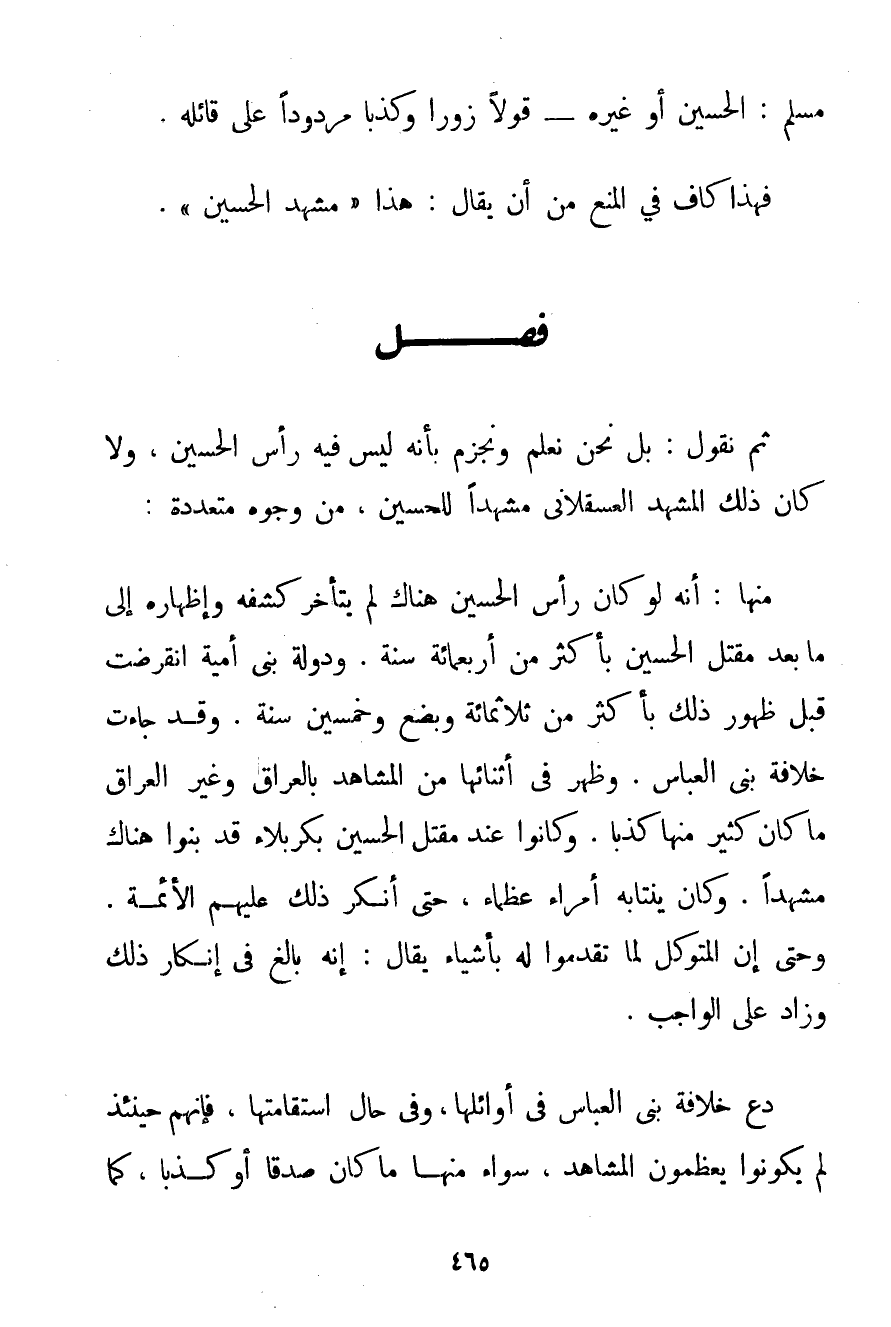 مسلم : الحسين أو غيره — قولاً زورا وكذبا مردوداً على قائله .
فهذا كاف في المنع من أن يقال : هذا « مشهد الحسين » .
فصــــــل
ثم نقول : بل نحن نعلم ونجزم بأنه ليس فيه رأس الحسين ، ولا
كان ذلك المشهد العسقلانى مشهداً للحسين ، من وجوه متعددة :
منها : أنه لو كان رأس الحسين هناك لم يتأخر كشفه وإظهاره إلى
ما بعد مقتل الحسين بأكثر من أربعمائة سنة . ودولة بنى أمية انقرضت
قبل ظهور ذلك بأكثر من ثلاثمائة وبضع وخمسين سنة . وقـد جاءت
خلافة بنى العباس . وظهر فى أثنائها من المشاهد بالعراق وغير العراق
ما كان كثير منها كذبا . وكانوا عند مقتل الحسين بكربلاء قد بنوا هناك
مشهداً . وكان ينتابه أمراء عظماء ، حتى أنـكر ذلك عليهـم الأئمـة .
وحتى إن المتوكل لما تقدموا له بأشياء يقال : إنه بالغ فى إنـكار ذلك
وزاد على الواجب .
دع خلافة بنى العباس فى أوائلها ، وفى حال استقامتها ، فإنهم حينئذ
لم يكونوا يعظمون المشاهد ، سواء منهـا ما كان صدقا أو كـذبا ، كما
٤٦٥